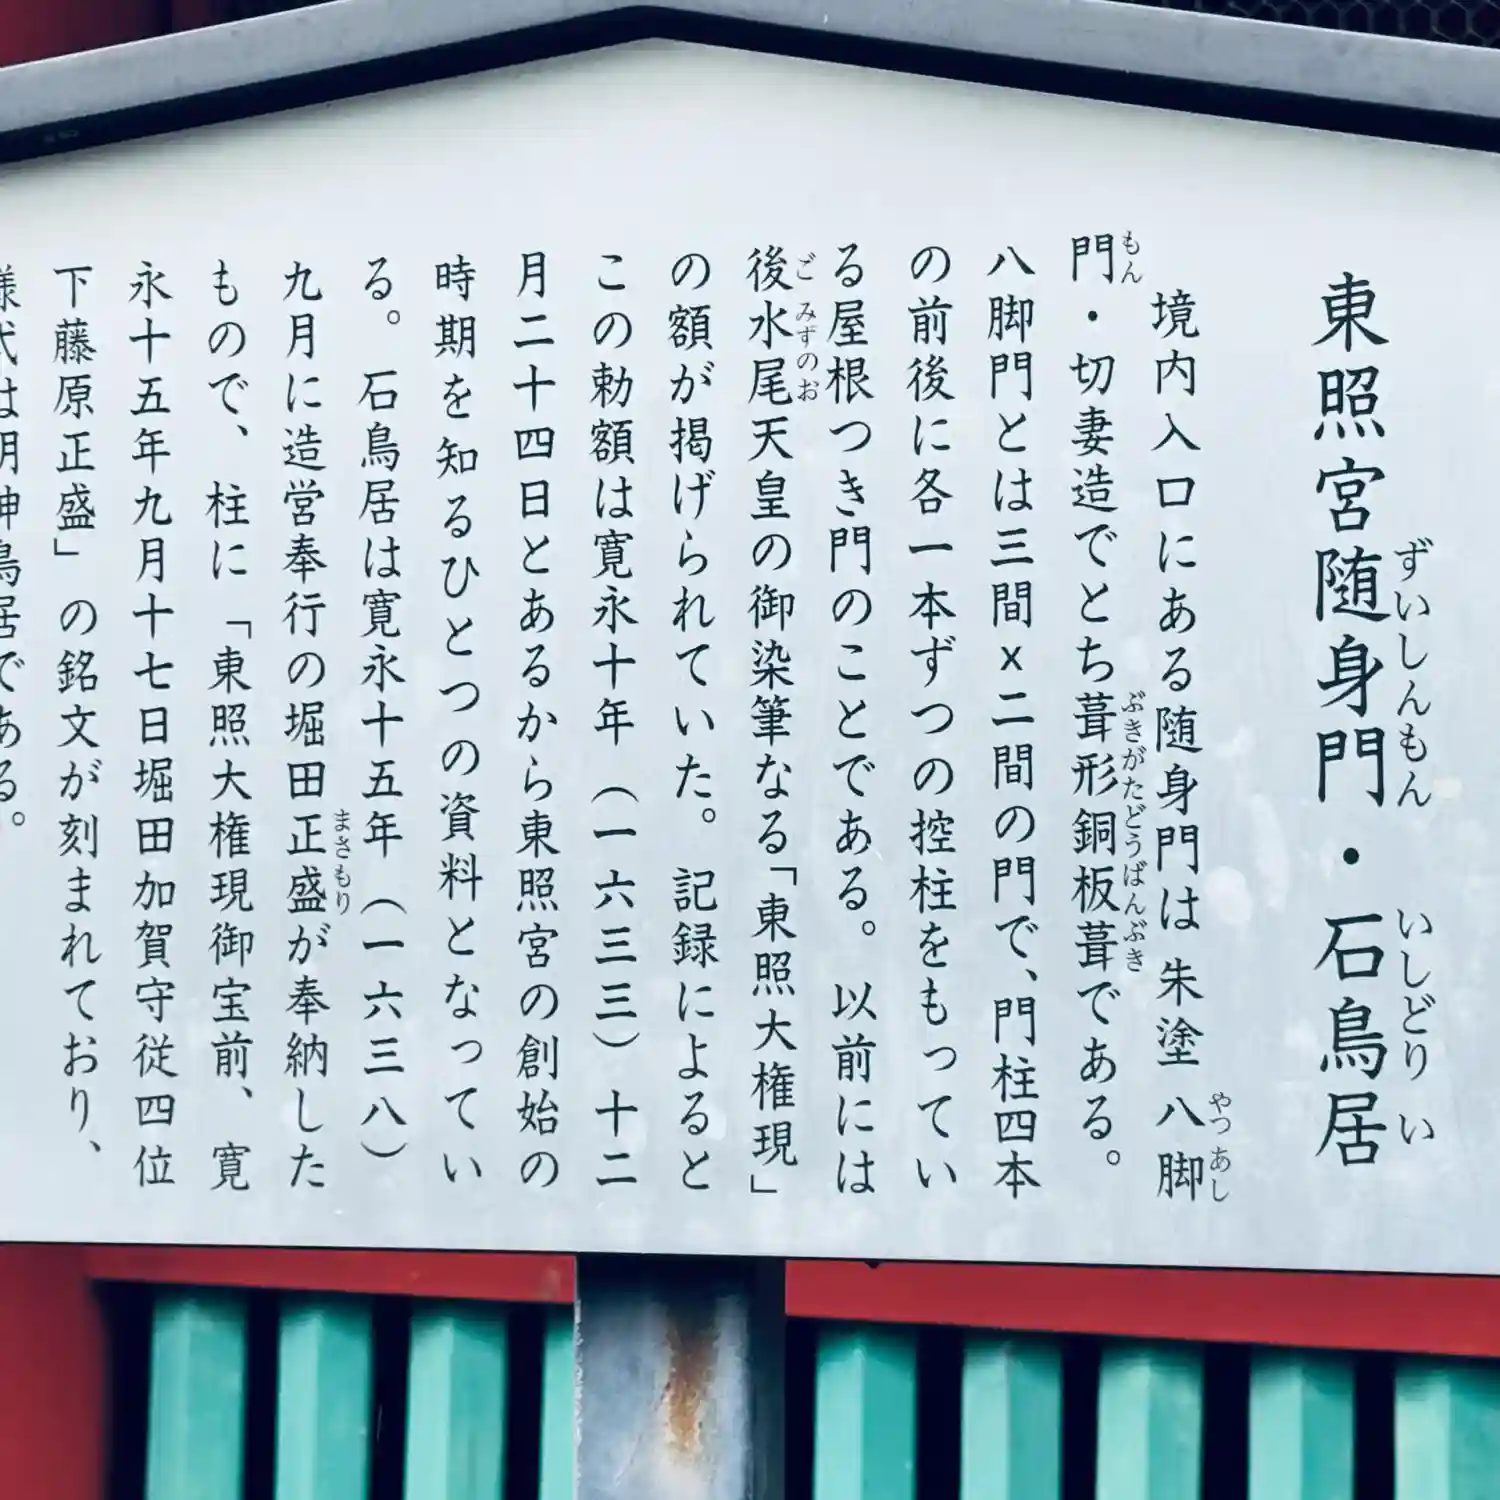 東照宮随身門・石鳥居
ずいしんもん いしどりい
境内入口にある随身門は朱塗八脚
やつあし
門・切妻造でとち葺形銅板葺である。
もん ぶきがたどうばんぶき
八脚門とは三間x二間の門で、門柱四本
の前後に各一本ずつの控柱をもってい
る屋根つき門のことである。以前には
後水尾天皇の御染筆なる「東照大権現」
ごみずのお
の額が掲げられていた。記録によると
この勅額は寛永十年(一六三三)十二
月二十四日とあるから東照宮の創始の
時期を知るひとつの資料となってい
る。石鳥居は寛永十五年(一六三八)
九月に造営奉行の堀田正盛が奉納した
まさもり
もので、柱に「東照大権現御宝前、寛
永十五年九月十七日堀田加賀守従四位
下藤原正盛」の銘文が刻まれており、
様式は明神鳥居である。